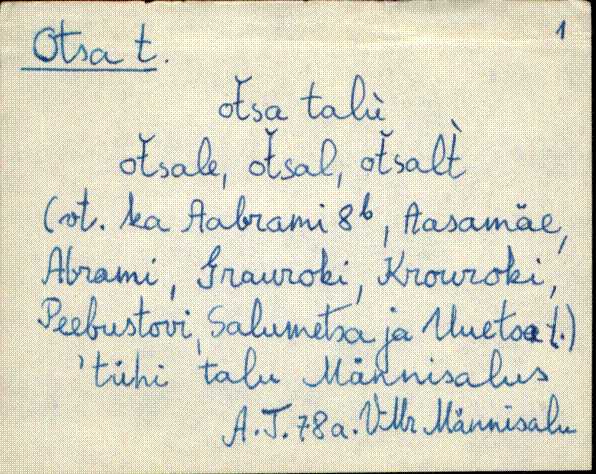 1
Otsa t.
oťsa talù
oťsale, oťsal, oťsalt̀
(vt. ka Aabrami 8b, Aasamäe,
Abrami, Grauroki, Krouroki,
Peebustovi, Salumetsa ja Uuetsa t.)
'tühi talu Männisalus
A.T. 78a. VMr Männisalu